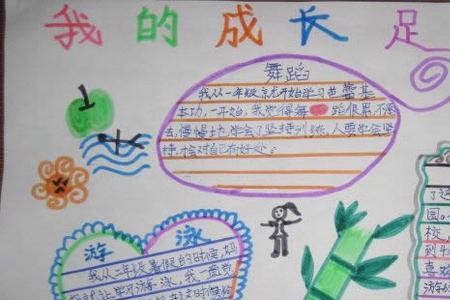 我的成长足
舞蹈
我从一年级京尤开始学习芭蕾基
本功,一开始,我觉得每 蹈很累,不
去,慢慢地,学会了坚持 人要学会坚
持,才会对自己有好处。
游 泳
我从二年级暑假的时候,妈
让 学习游泳,我一
了这
园。
校,
到
喜欢
游